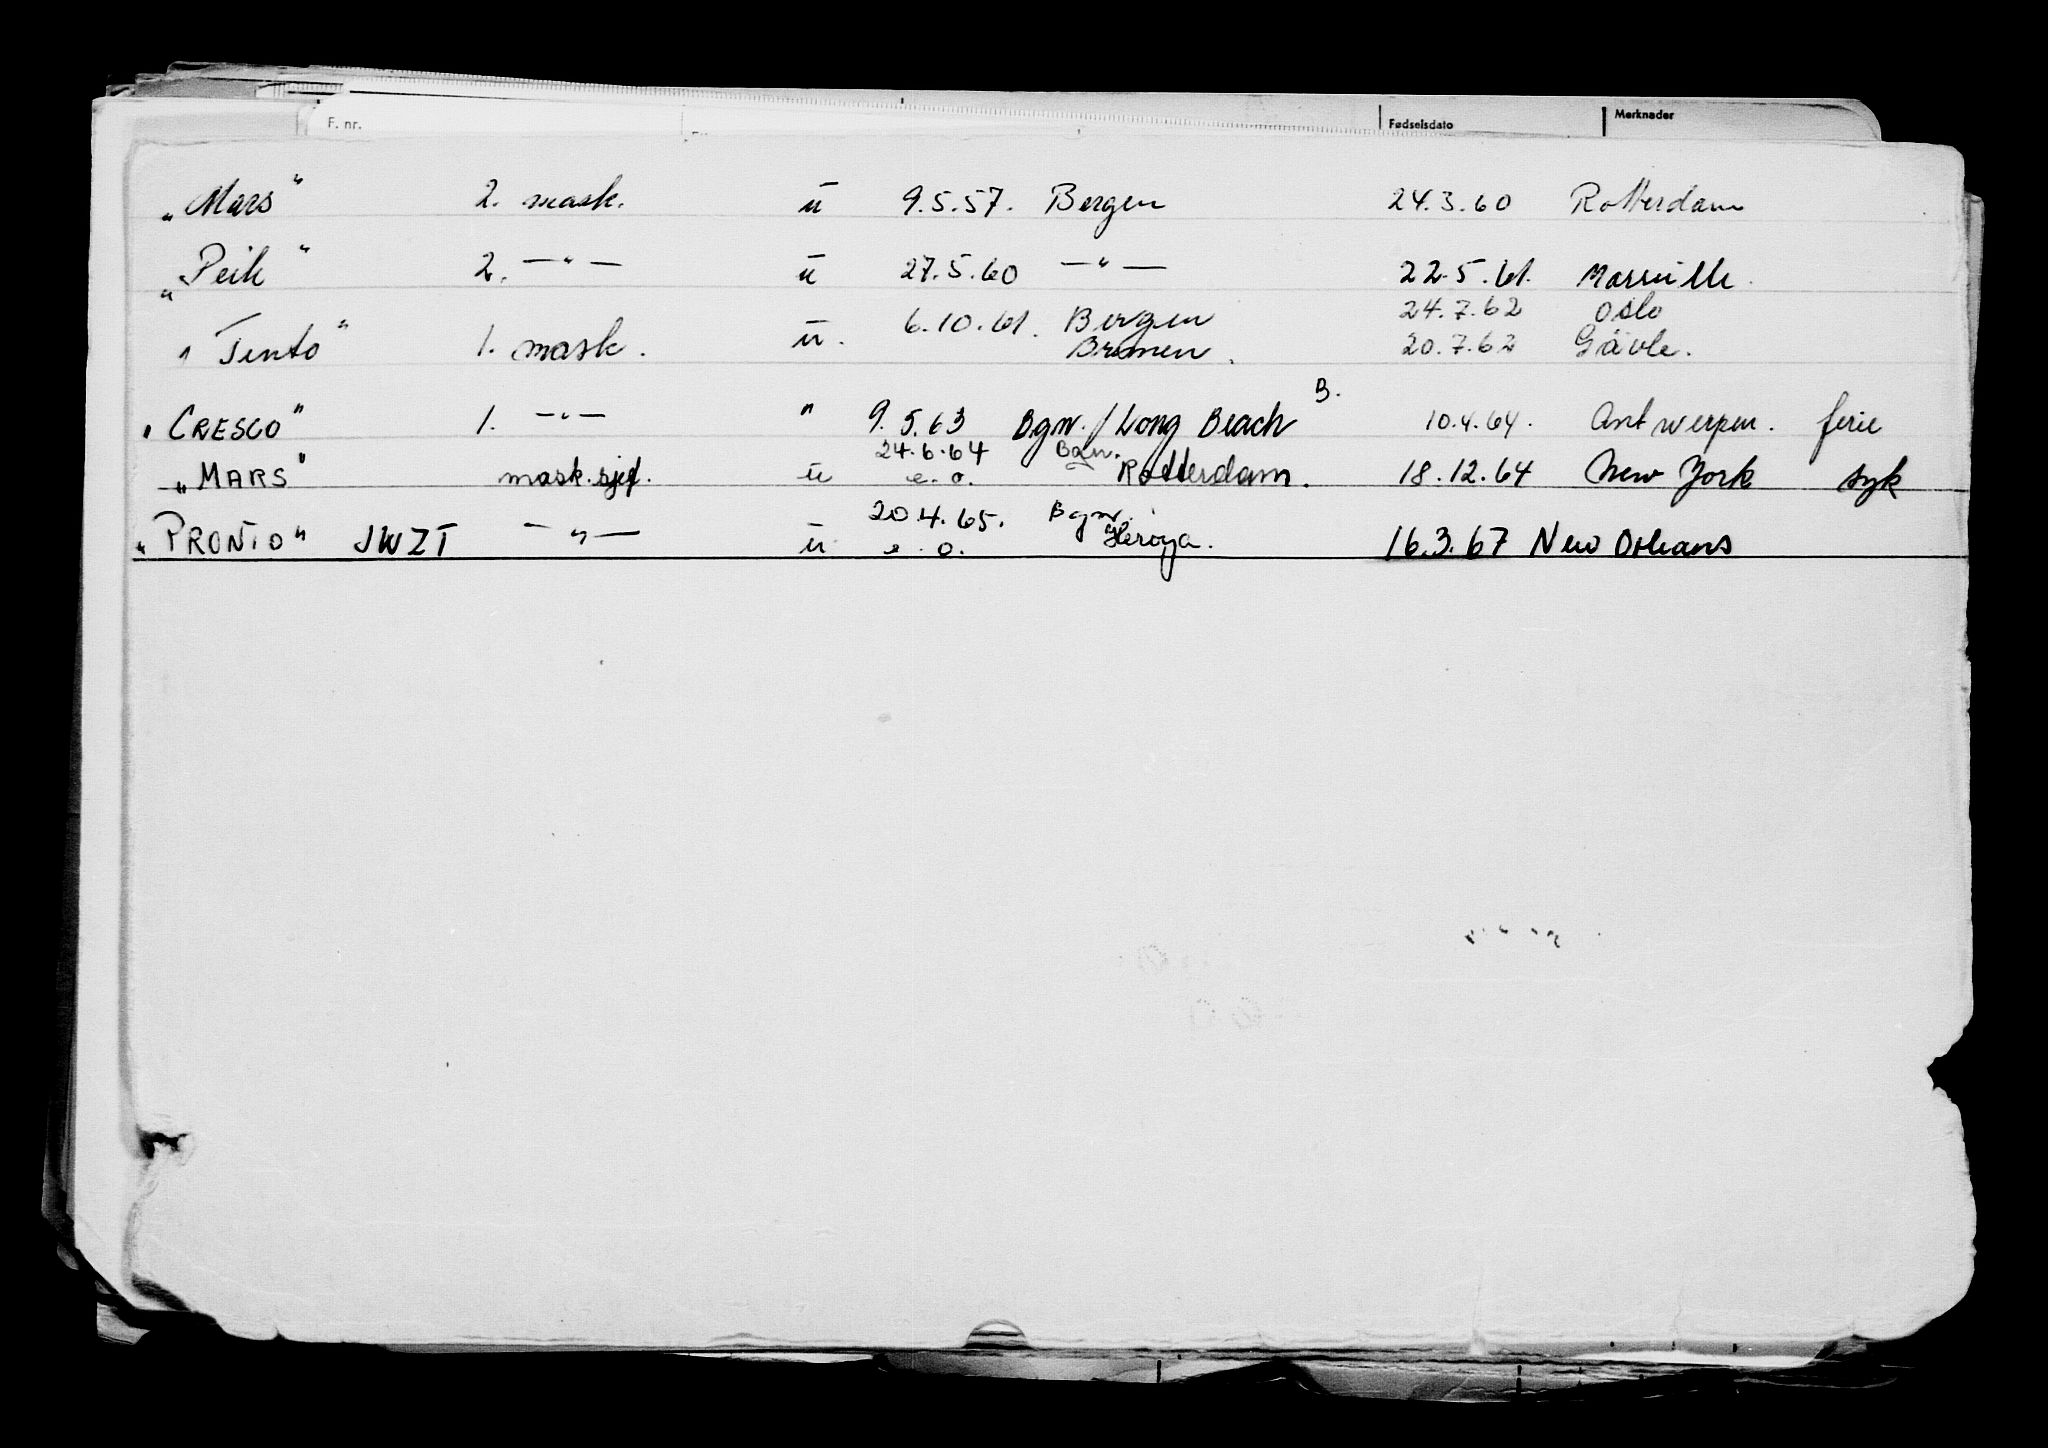 F. nr. Fødselsdato Merknader
„Mars" 2. mask. u 9.5.57. Bergen 24.3.60 Rotterdam
„Peik" 2. —"— u 27.5.60 —"— 22.5.61. Marseille.
24.7.62 Oslo
6.10.61. Bergen
"Tento" 1. mask. u. Bremen. 20.7.62 Gävle.
"CRESCO" 1. —"— " 9.5.63 Bgn./Long Beach B. 10.4.64. Antwerpen. ferie
24.6.64 Bgn.
„MARS" mask.sjef. u e.o. Rotterdam. 18.12.64 New York syk
20.4.65. Bgn.
„PRONTO" JWZT —"— u e.o. Herøya. 16.3.67 New Orleans